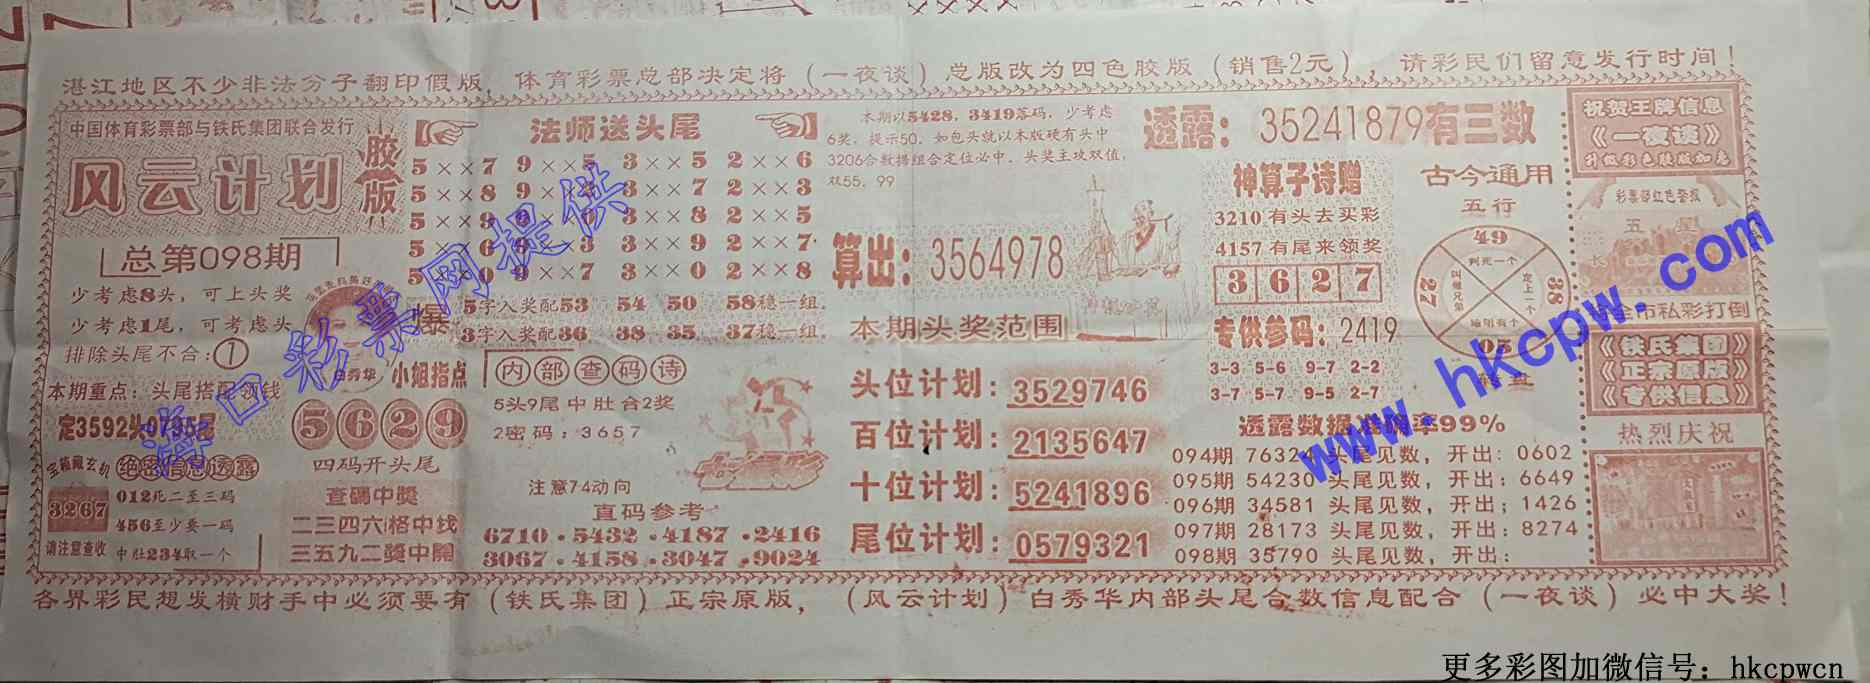 湛江地区不少非法分子翻印假版，体育彩票总部决定将（一夜谈）总版改为四色胶版（销售2元），请彩民们留意发行时间！
中国体育彩票部与铁氏集团联合发行
风云计划
胶版
总第098期
少考虑8头，可上头奖
少考虑1尾，可考虑头
排除头尾不合：①
本期重点：头尾搭配领钱
定3592头0795尾
绝密信息透露
3267
012死二至三码
456至少要一码
请注意查收
中肚234取一个
爆
白秀华
小姐指点
5629
四码开头尾
查码中奖
二三四六格中线
三五九二奖中间
法师送头尾
5××7 9××5 3××5 2××6
5××8 9×× 3××7 2××3
5×× 9×× 3××8 2××5
5×× 9×× 3××9 2××7
5××0 9××7 3××0 2××8
5字入奖配53 54 50 58稳一组.
3字入奖配36 38 35. 37稳一组.
内部查码诗
5头9尾中肚合2奖
2密码：3657
注意74动向
直码参考
6710·5432·4187·2416
3067·4158·3047·9024
本期以5428，3419落码，少考虑
6奖，提示50，如包头就以本版硬有头中
3206合数据组合定位必中，头奖主攻双值，
双55，99
算出：3564978
本期头奖范围
头位计划：3529746
百位计划：2135647
十位计划：5241896
尾位计划：0579321
透露：35241879有三数
神算子诗赠
3210有头去买彩
4157有尾来领奖
3627
专供参码：2419
3-3 5-6 9-7 2-2
3-7 5-7 9-5 2-7
古今通用
五行
49
判死一个
38
定上一个
05
27
叫做兄弟
透露数据准确率99%
094期 76324 头尾见数，开出：0602
095期 54230 头尾见数，开出：6649
096期 34581 头尾见数，开出；1426
097期 28173 头尾见数，开出：8274
098期 35790 头尾见数，开出：
祝贺王牌信息
《一夜谈》
升级彩色胶版加惠
彩票部红色警报
五星
全市私彩打倒
《铁氏集团》
《正宗原版》
《专供信息》
热烈庆祝
各界彩民想发横财手中必须要有（铁氏集团）正宗原版，（风云计划）白秀华内部头尾合数信息配合（一夜谈）必中大奖！
海口彩票网提供
www.hkcpw.com
更多彩图加微信号：hkcpwcn